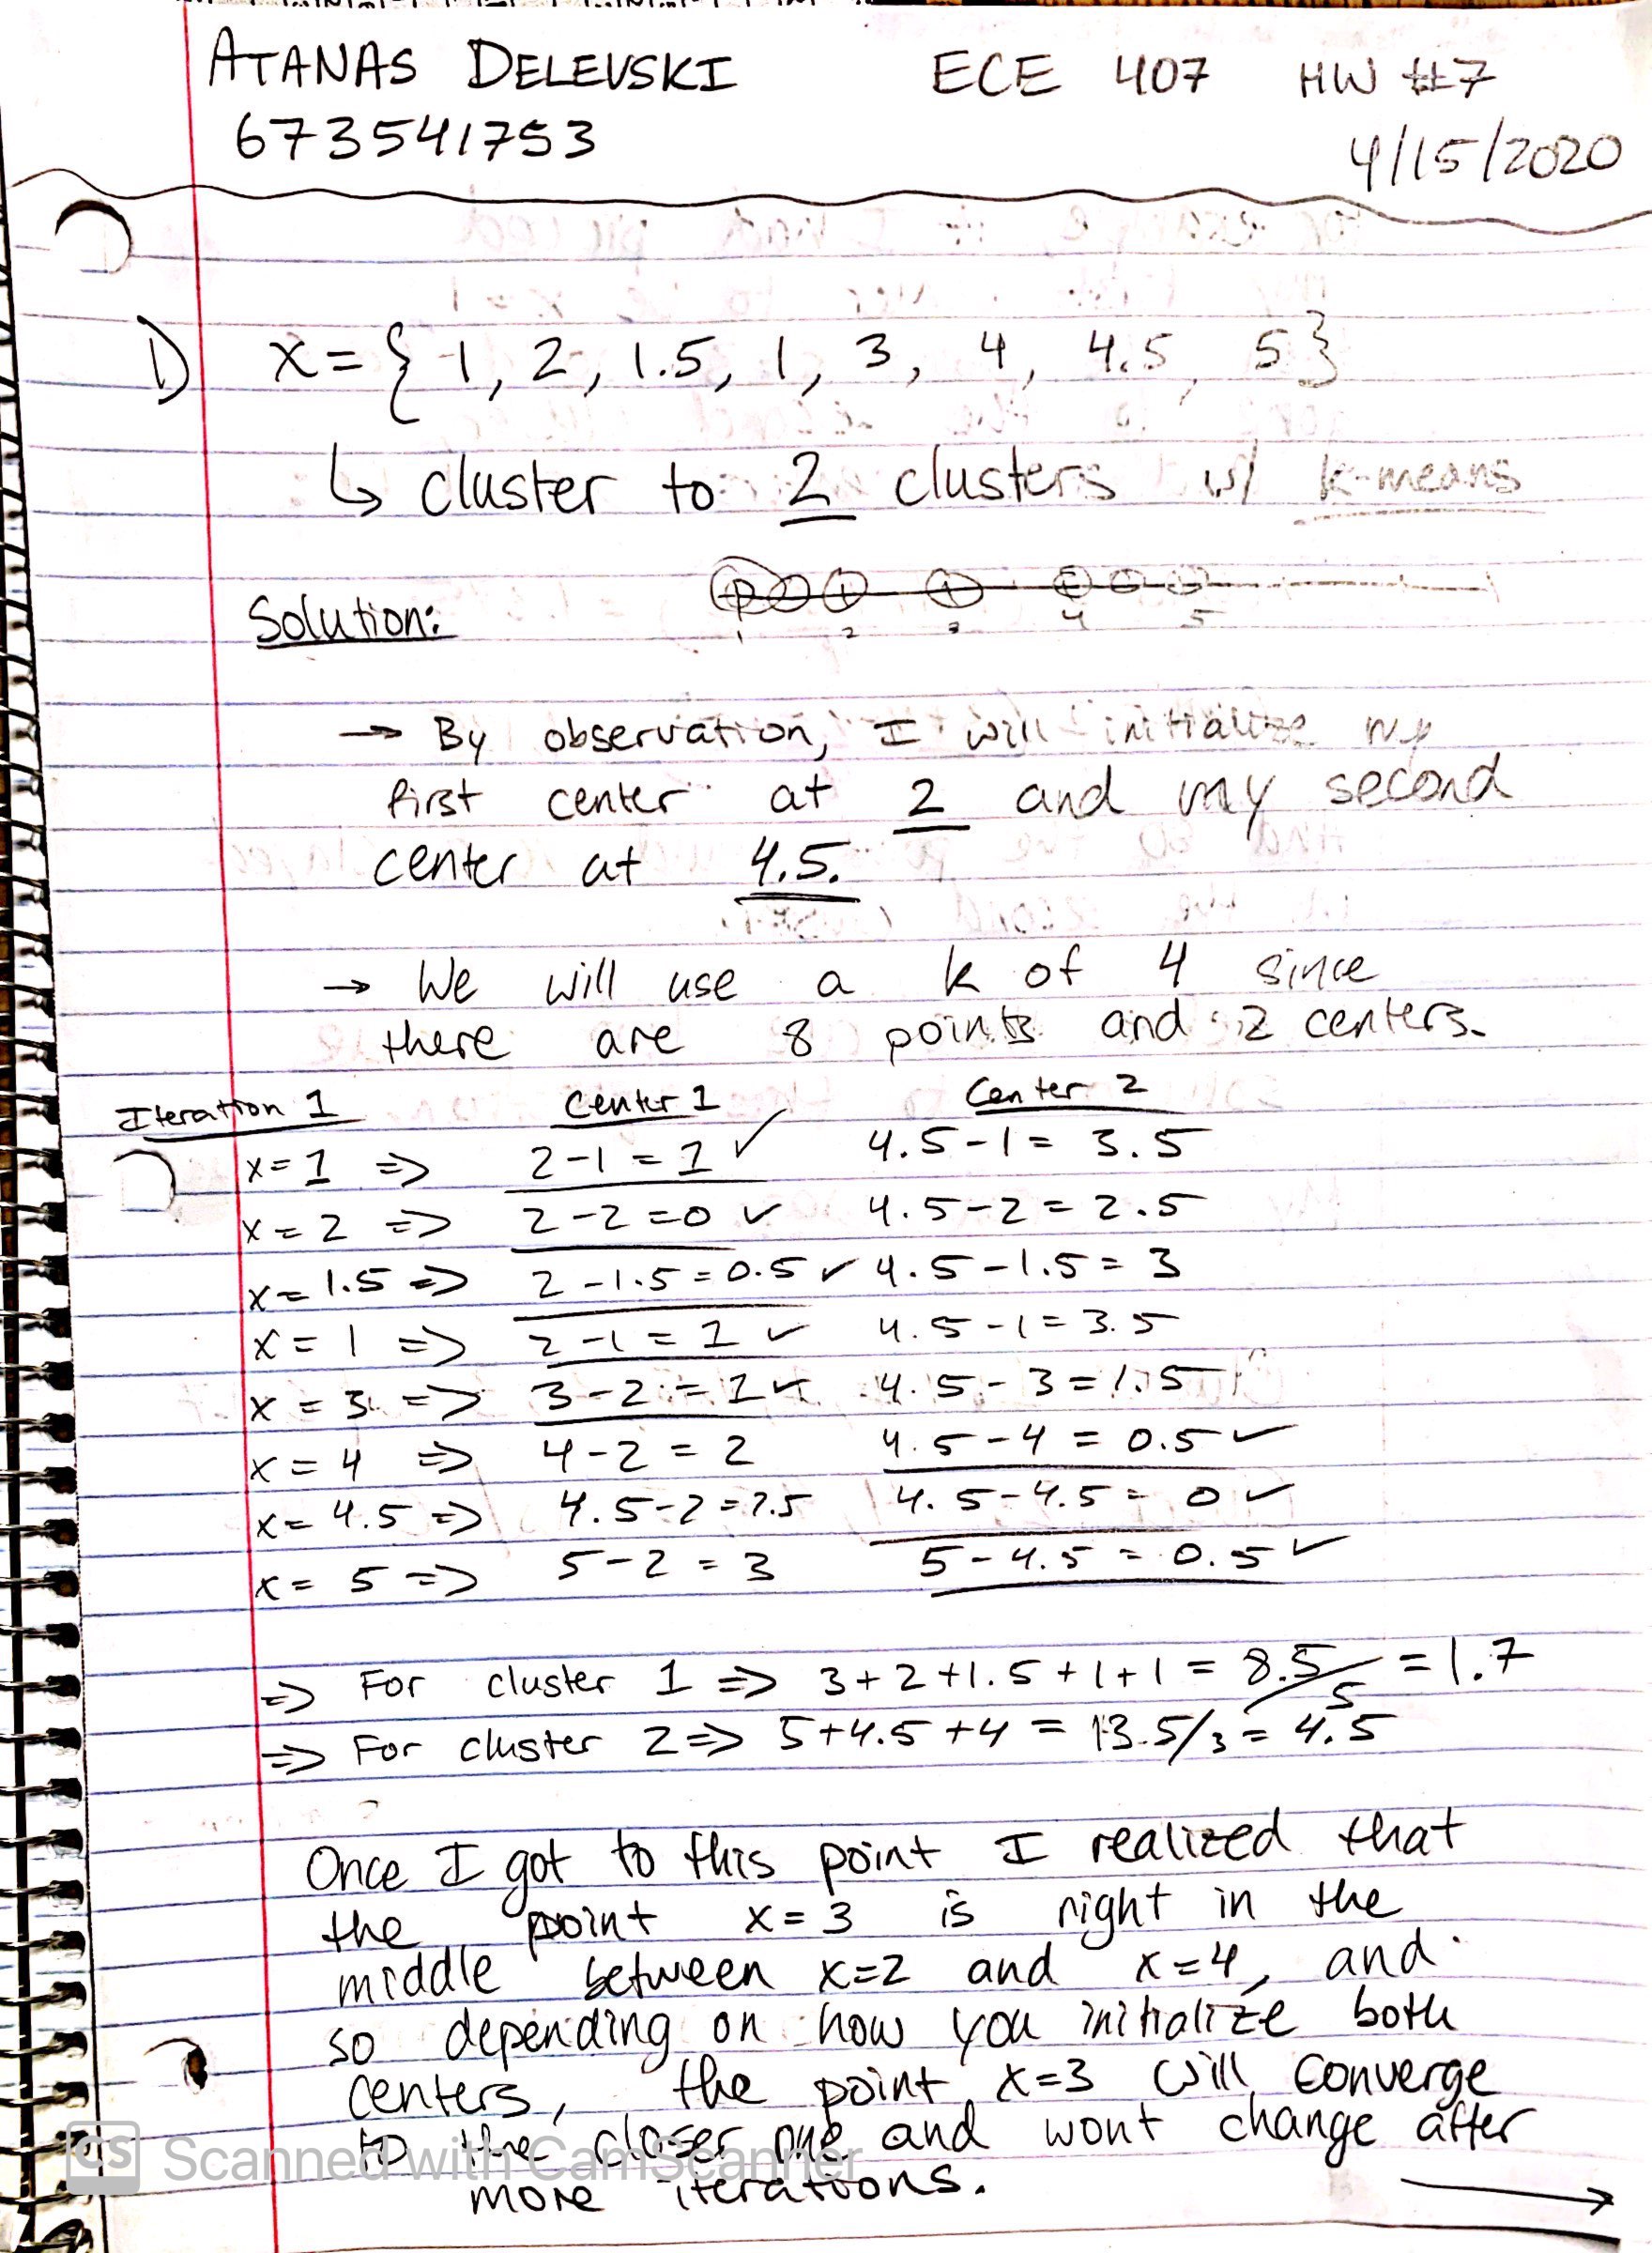 ATANAS DELEVSKI ECE 407 HW #7
673541753 4/15/2020
1) x = { 1, 2, 1.5, 1, 3, 4, 4.5, 5 }
↳ cluster to 2 clusters w/ k-means
Solution:
1 2 3 4 5
→ By observation, I will initialize my
first center at 2 and my second
center at 4.5.
→ We will use a k of 4 since
there are 8 points and 2 centers.
Iteration 1 Center 1 Center 2
x=1 => 2-1=1 ✓ 4.5-1= 3.5
x=2 => 2-2=0 ✓ 4.5-2=2.5
x=1.5 => 2-1.5=0.5 ✓ 4.5-1.5=3
x=1 => 2-1=1 ✓ 4.5-1=3.5
x=3 => 3-2=1 ✓ 4.5-3=1.5
x=4 => 4-2=2 4.5-4=0.5 ✓
x=4.5 => 4.5-2=2.5 4.5-4.5=0 ✓
x=5 => 5-2=3 5-4.5=0.5 ✓
=> For cluster 1 => 3+2+1.5+1+1=8.5/5=1.7
=> For cluster 2 => 5+4.5+4=13.5/3=4.5
Once I got to this point I realized that
the point x=3 is right in the
middle between x=2 and x=4, and
so depending on how you initialize both
centers, the point x=3 will converge
to the closer one and wont change after
more iterations. →
CS Scanned with CamScanner